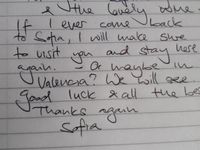 & the lovely wine.
If I ever come back
to Sofia, I will make sure
to visit you and stay here
again. - Or maybe in
Valencia? We will see.
Good luck & all the best
Thanks again
Sofia